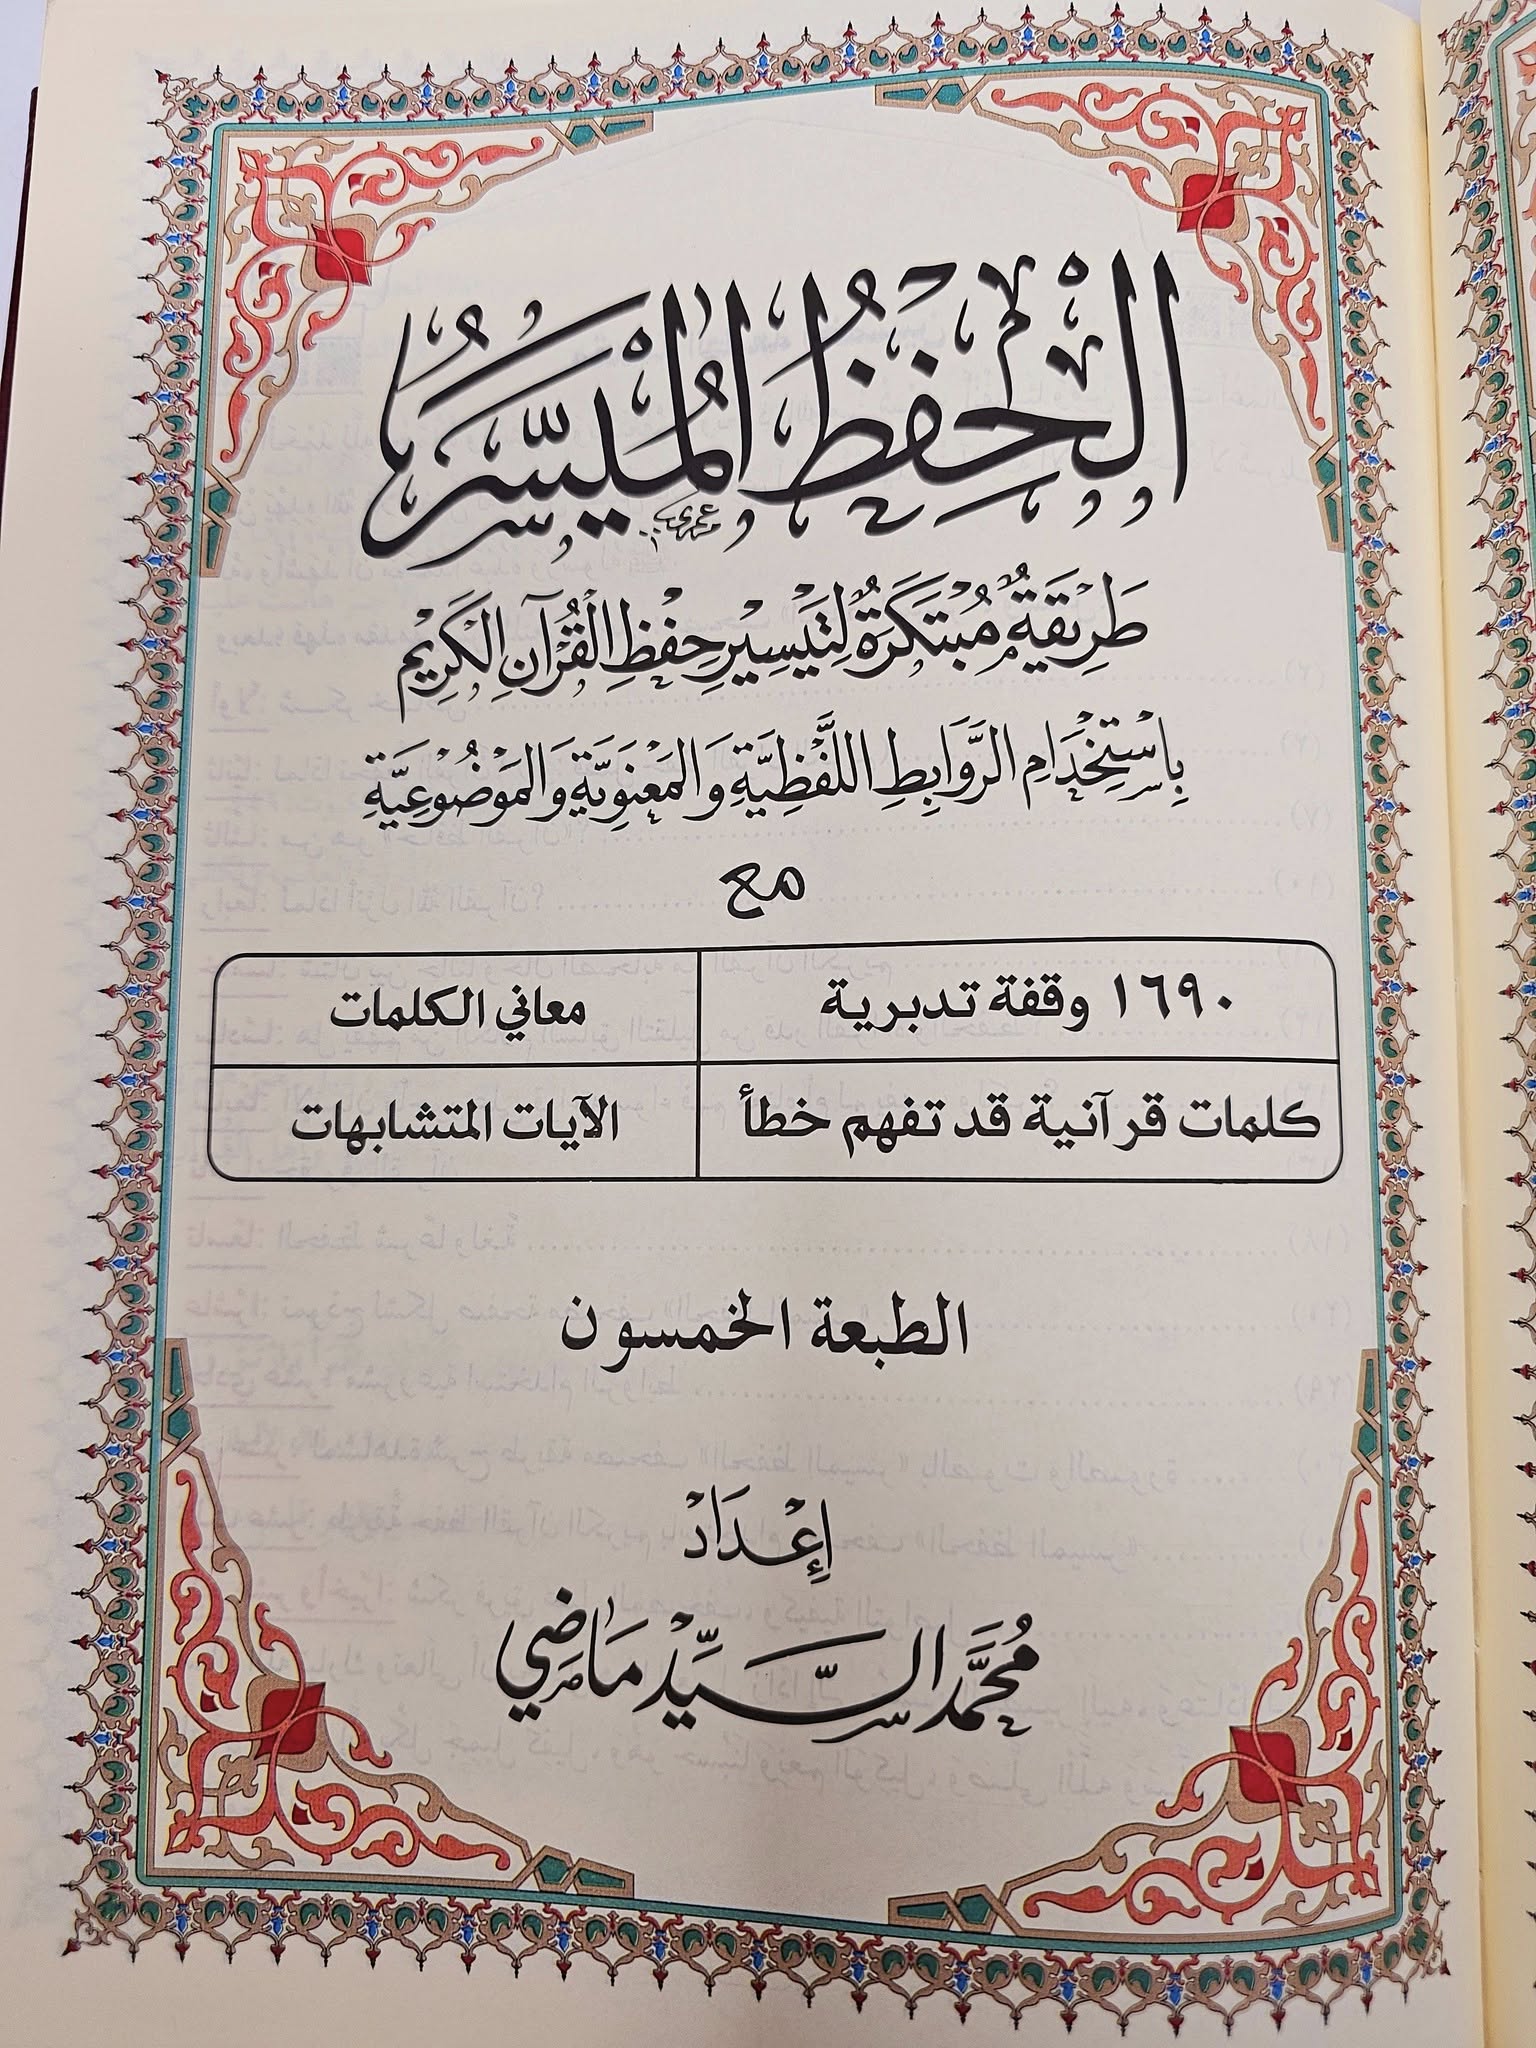 الْحِفْظُ الْمُيَسَّرُ
طَرِيقَةٌ مُبْتَكَرَةٌ لِتَيْسِيرِ حِفْظِ الْقُرْآنِ الْكَرِيمِ
بِاسْتِخْدَامِ الرَّوَابِطِ اللَّفْظِيَّةِ وَالْمَعْنَوِيَّةِ وَالْمَوْضُوعِيَّةِ
مع
١٦٩٠ وقفة تدبرية معاني الكلمات
كلمات قرآنية قد تفهم خطأ الآيات المتشابهات
الطبعة الخمسون
إِعْدَادْ
مُحَمَّد السَّيِّدْ مَاضِي